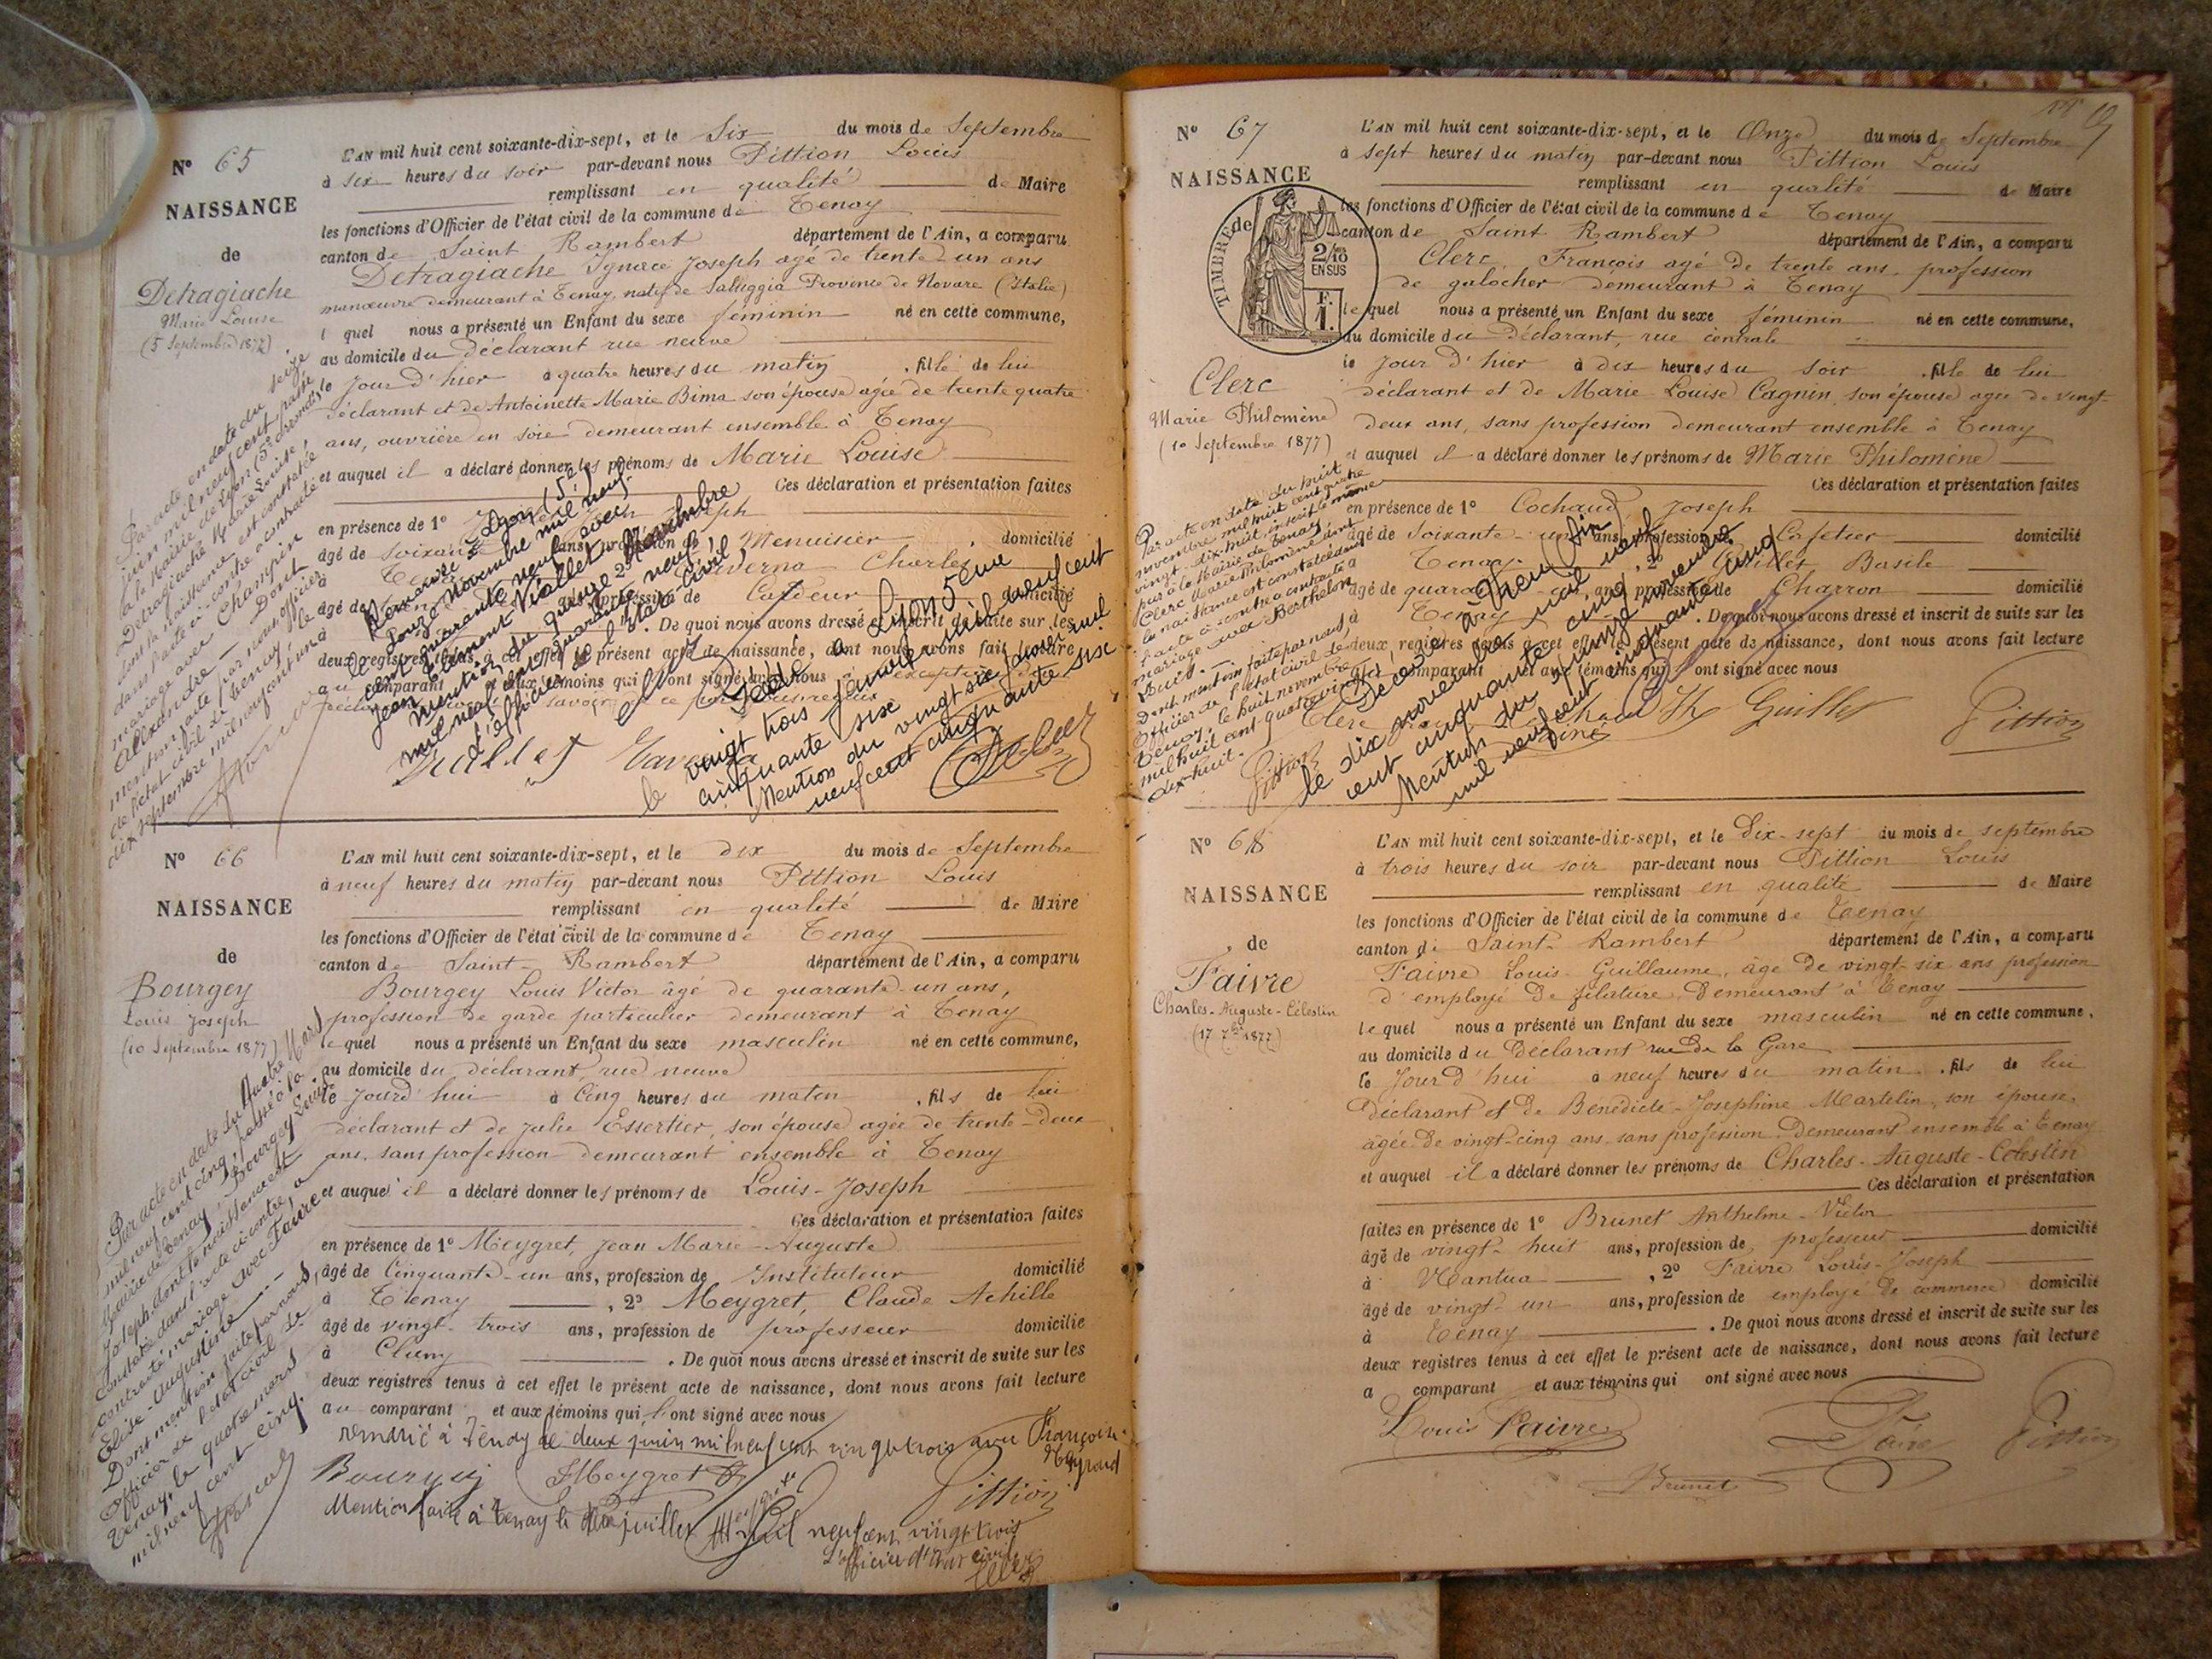 N° 65
NAISSANCE
de
Detragiache
Marie Louise
(5 Septembre 1877)
L'AN mil huit cent soixante-dix-sept, et le Six du mois de Septembre
à six heures du soir par-devant nous Pittion Louis
remplissant en qualité de Maire
les fonctions d'Officier de l'état civil de la commune de Tenay
canton de Saint Rambert département de l'Ain, a comparu
Detragiache Ignace Joseph agé de trente-un ans
manœuvre demeurant à Tenay, natif de Saluggia Province de Novare (Italie)
lequel nous a présenté un Enfant du sexe féminin né en cette commune,
au domicile du déclarant rue neuve
le jour d'hier à quatre heures du matin, fille de lui
déclarant et de Antoinette Marie Bima son épouse agée de trente quatre
ans, ouvrière en soie demeurant ensemble à Tenay
et auquel il a déclaré donner les prénoms de Marie Louise
Ces déclaration et présentation faites
en présence de 1° Joseph
âgé de soixante ans, profession de Menuisier, domicilié
à Tenay, 2° Taverna Charles
âgé de ans, profession de Cardeur domicilié
à . De quoi nous avons dressé et inscrit de suite sur les
deux registres tenus à cet effet le présent acte de naissance, dont nous avons fait lecture
au comparant et aux témoins qui l'ont signé avec nous à l'exception du
Par acte en date du seize
juin mil neuf cent passé
à la Mairie de Lyon (5e arrondt)
Detragiache Marie Louise
dont la naissance est constatée
dans l'acte ci-contre a contracté
mariage avec Champin
Alexandre — Dont
mention faite par nous, officier
de l'état civil de Tenay le
dix septembre mil neuf cent un
Remariée à Lyon (5e)
le douze Novembre mil neuf
cent quarante neuf avec
Jean Clément Viallet
Mention du quinze Novembre
mil neuf cent quarante neuf
l'officier de l'état-civil
Décédée à Lyon 5ème
le vingt trois janvier mil neuf cent
cinquante six
Mention du vingt six janvier mil
neuf cent cinquante six
N° 66
NAISSANCE
de
Bourgey
Louis Joseph
(10 Septembre 1877)
L'AN mil huit cent soixante-dix-sept, et le dix du mois de Septembre
à neuf heures du matin par-devant nous Pittion Louis
remplissant en qualité de Maire
les fonctions d'Officier de l'état civil de la commune de Tenay
canton de Saint-Rambert département de l'Ain, a comparu
Bourgey Louis Victor âgé de quarante-un ans,
profession de garde particulier demeurant à Tenay
lequel nous a présenté un Enfant du sexe masculin né en cette commune,
au domicile du déclarant, rue neuve
le jourd'hui à Cinq heures du matin, fils de lui
déclarant et de Julie Essertier, son épouse agée de trente-deux
ans, sans profession demeurant ensemble à Tenay
et auquel il a déclaré donner les prénoms de Louis-Joseph
Ces déclaration et présentation faites
en présence de 1° Meygret, Jean Marie-Auguste
âgé de Cinquante-un ans, profession de Instituteur domicilié
à Tenay, 2° Meygret, Claude Achille
âgé de vingt-trois ans, profession de professeur domicilié
à Cluny. De quoi nous avons dressé et inscrit de suite sur les
deux registres tenus à cet effet le présent acte de naissance, dont nous avons fait lecture
au comparant et aux témoins qui l'ont signé avec nous
remarié à Tenay le deux juin mil neuf cent vingt trois avec Françoise
Bourgey Meygret Pittion
Mention faite à Tenay le juillet mil neuf cent vingt trois
L'officier d'état civil
Par acte en date du Quatre Mars
mil neuf cent cinq, passé à la
Mairie de Tenay, Bourgey Louis
Joseph dont la naissance est
constatée dans l'acte ci-contre, a
contracté mariage avec Favre
Elise-Augustine —
Dont mention faite par nous,
Officier de l'état civil de
Tenay, le quatre mars
mil neuf cent cinq.
N° 67
NAISSANCE
de
TIMBRE
2/10
EN SUS
F.
1.
Clerc
Marie Philomène
(10 Septembre 1877)
L'AN mil huit cent soixante-dix-sept, et le Onze du mois de Septembre
à sept heures du matin par-devant nous Pittion Louis
remplissant en qualité de Maire
les fonctions d'Officier de l'état civil de la commune de Tenay
canton de Saint-Rambert département de l'Ain, a comparu
Clerc François agé de trente ans, profession
de galocher demeurant à Tenay
lequel nous a présenté un Enfant du sexe féminin né en cette commune,
au domicile du Déclarant, rue centrale
le jour d'hier à dix heures du soir, fille de lui
déclarant et de Marie Louise Cagnin, son épouse agée de vingt-
deux ans, sans profession demeurant ensemble à Tenay
et auquel il a déclaré donner les prénoms de Marie Philomène
Ces déclaration et présentation faites
en présence de 1° Cochaud, Joseph
âgé de Soixante-un ans, profession de Cafetier domicilié
à Tenay, 2° Guillet, Basile
âgé de quarante ans, profession de Charron domicilié
à Tenay. De quoi nous avons dressé et inscrit de suite sur les
deux registres tenus à cet effet le présent acte de naissance, dont nous avons fait lecture
au comparant et aux témoins qui l'ont signé avec nous
Clerc Guillet Pittion
Par acte en date du huit
novembre mil huit cent quatre
vingt-dix-huit, inscrit le même
jour à la Mairie de Tenay
Clerc Marie Philomène dont
la naissance est constatée dans
l'acte ci-contre a contracté
mariage avec Berthelon
Dont mention faite par nous,
Officier de l'état civil de
Tenay, le huit novembre
mil huit cent quatre vingt
dix-huit.
Décédée à (Ain)
le dix novembre mil neuf
cent cinquante cinq.
Mention du quinze novembre
mil neuf cent cinquante cinq
N° 68
NAISSANCE
de
Faivre
Charles-Auguste-Célestin
(17 7bre 1877)
L'AN mil huit cent soixante-dix-sept, et le Dix-sept du mois de septembre
à trois heures du soir par-devant nous Pittion Louis
remplissant en qualité de Maire
les fonctions d'Officier de l'état civil de la commune de Tenay
canton de Saint-Rambert département de l'Ain, a comparu
Faivre Louis-Guillaume, âgé de vingt-six ans profession
d'employé de filature, Demeurant à Tenay
lequel nous a présenté un Enfant du sexe masculin né en cette commune,
au domicile du Déclarant rue de la Gare
le Jourd'hui à neuf heures du matin, fils de lui
Déclarant et de Bénédicte-Joséphine Martelin, son épouse,
âgée de vingt-cinq ans, sans profession Demeurant ensemble à Tenay
et auquel il a déclaré donner les prénoms de Charles-Auguste-Célestin
Ces déclaration et présentation
faites en présence de 1° Brunet Anthelme-Victor
âgé de vingt-huit ans, profession de professeur domicilié
à Nantua, 2° Faivre Louis-Joseph
âgé de vingt-un ans, profession de employé de commerce domicilié
à Tenay. De quoi nous avons dressé et inscrit de suite sur les
deux registres tenus à cet effet le présent acte de naissance, dont nous avons fait lecture
a comparant et aux témoins qui ont signé avec nous
Louis Faivre Faivre Pittion
Brunet